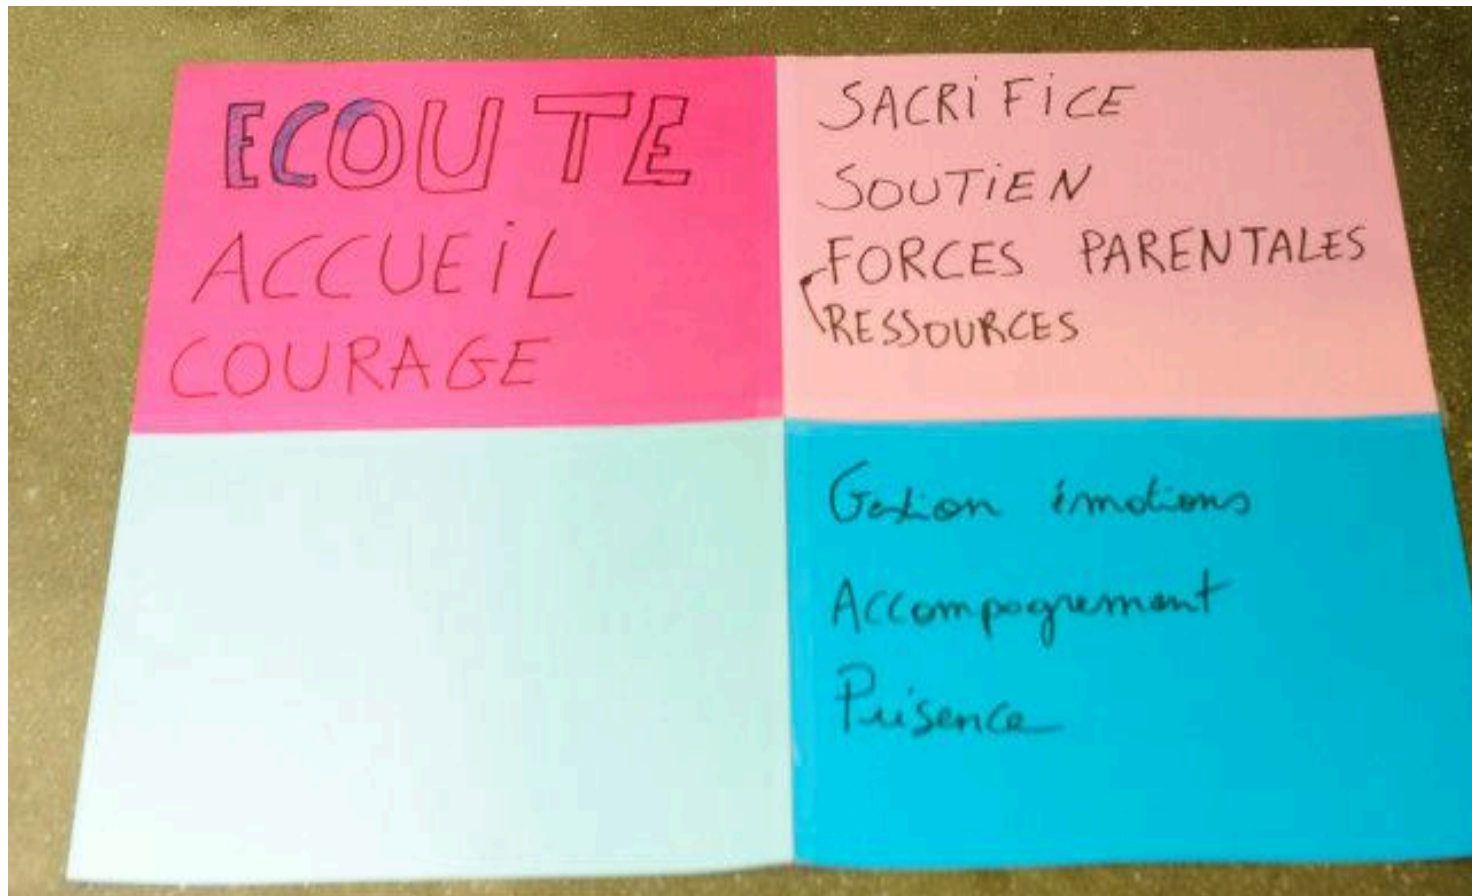 ECOUTE
ACCUEiL
COURAGE
SACRiFiCE
SOUTiEN
FORCES PARENTALES
RESSOURCES
Gestion émotions
Accompagnement
Présence